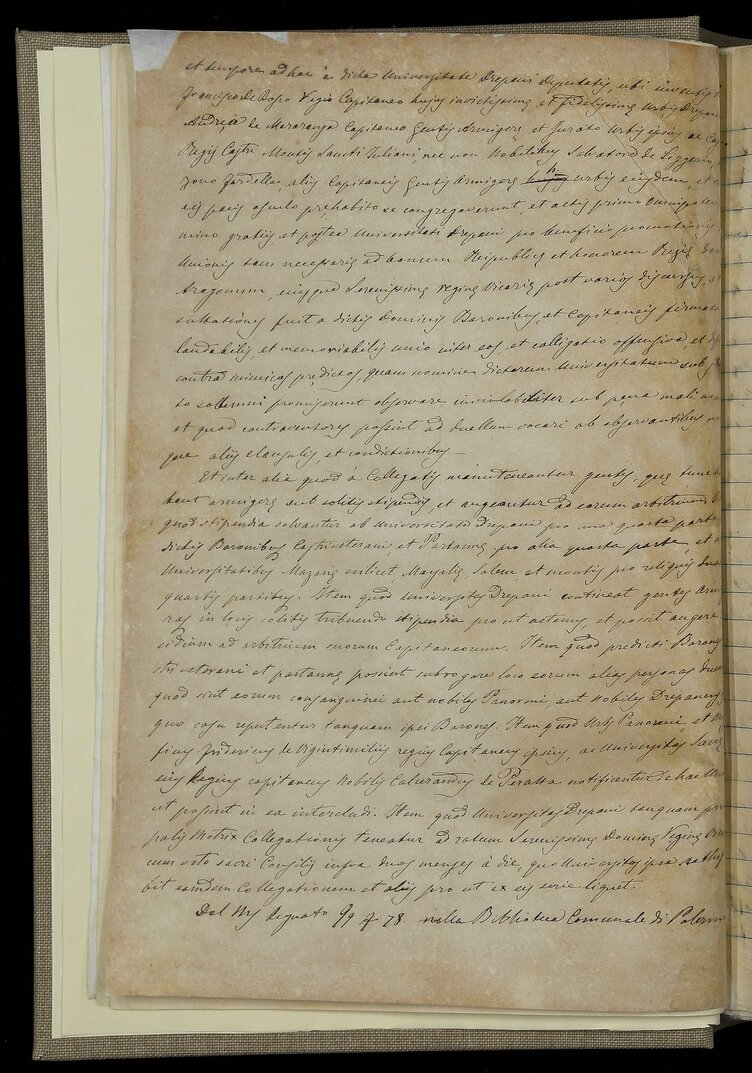 et tempore ad hac à dicta Universitate Drepani Deputatis, ubi inventis
Francisco di Bosco Regio Capitaneo hujus invictissime et fidelissime Urbis Drepan
Andrea de Mazaranga Capitaneo Gentis Armigere et Jurato Urbis ipsius ac
Regii Castri Montis Sancti Juliani, nec non Nobilibus Salvatore de
Jono Fardella, aliis Capitaneis Gentis Armigere Urbis ejusdem, et
eis pacis osculo prehabito se congregaverunt, et actis primo Omnipoten
mino gratiis et postea Universitati Drepani pro beneficio promotionis
Unionis tam necessarie ad bonum Reipublice et honorem Regis
Aragonum, ejusque Serenissime Regine Vicarie post varios discursus,
sultationes fuit a dictis Dominis Baronibus, et Capitaneis firmata
laudabilis et memorabilis unio inter eos, et colligatio offensiva et
contra inimicos predictos, quam nomine dictarum Universitatum sub
to solemni promiserunt observare inviolabiliter sub pena mali
et quod controventores possint ad duellum vocari ab observantibus
que aliis clausulis, et conditionibus —
Et inter alia quod à Collegatis manuteneantur gentes, que tunc
bant armigere aut solitis stipendiis, et augeantur ad eorum arbitrium
quod stipendia solvantur ab Universitate Drepani pro una quarta parte
dictis Baronibus Castriveterani et Partanne pro alia quarta parte, et
Universitatibus Mazarie scilicet, Marsalie, Salem et montis pro reliquis
quartis partibus. Item quod Universitas Drepani contineat gentes Arm
ras in locis solitis tribuendo stipendia pro ut actenus et possit augere
sidium ad arbitrium suorum Capitaneorum. Item quod predicti Barones
striveterani et partanne possint subrogare loco eorum alias personas
quod sint eorum consanguinei aut nobiles Panormi aut Nobiles Drepanens
quo casu reputentur tanquam ipsi Barones. Item quod Urbs Panormi et
ficus Fridericus de Vigintimiliis regius Capitaneus ipsius, ac Universitas
ejus Regius capitaneus Nobilis Calcerandus de Peralta notificentur de hac
ut possint in ea intercludi. Item quod Universitas Drepani tanquam
palis Motrix Collegationis teneatur ad ratum Serenissime Domine Regine
cum voto sacri Consilii infra duos menses à die, quo Universitas ipsa
bit eamdem Collegationem et aliis pro ut ex ejus serie liquet.
Dal Ms segnato Qq F 78. nella Biblioteca Comunale di Palerm